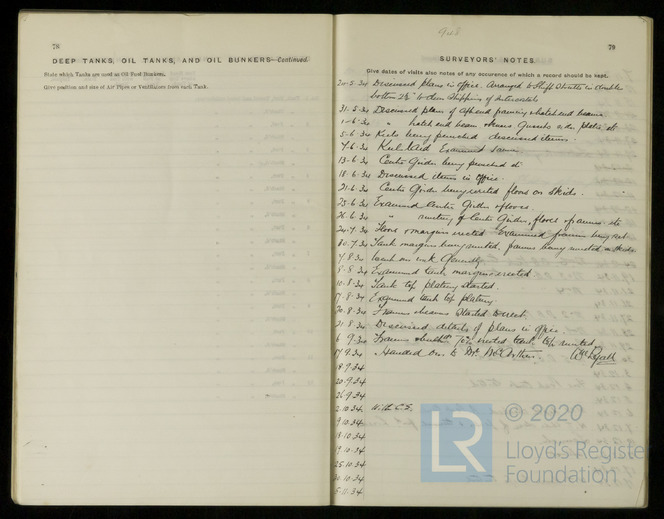 78
DEEP TANKS, OIL TANKS, AND OIL BUNKERS—Continued.
State which Tanks are used as Oil Fuel Bunkers.
Give position and size of Air Pipes or Ventilators from each Tank.
948
79
SURVEYORS' NOTES.
Give dates of visits also notes of any occurence of which a record should be kept.
Discussed plans in office. Arranged to
bottom 2½" to
31.5.34 Discussed plan of framing hatch end beams
1-6.34 " hatch end beam
5.6.34 Keels being punched discussed items.
7.6.34 Keel laid Examined same
13.6.34 Centre Girder being punched etc
18.6.34 Discussed items in office.
21.6.34 Centre Girder being erected floors on skids.
25.6.34 Examined Centre Girder & floors.
26.6.34 " riveting of Centre Girder, floors & frames etc
Floors & margins erected Examined frames being set
Tank margins being riveted, frames being riveted on skids
7.8.34 work generally
8.8.34 Examined tank margins erected
10.8.34 Tank top plating started.
17.8.34 Examined tank top plating
20.8.34 Frames & beams started to erect
21.8.34 Discussed details of plans in office.
6 9.34 Frames & erected tank top riveted
17 9.34 Handed over to Mr McArthur.
18.9.34
20.9.34
26.9.34
2.10.34 With C.S.
9.10.34
18.10.34
19.10.34
25.10.34
30.10.34
5.11.34
LR © 2020
Lloyd's Register
Foundation